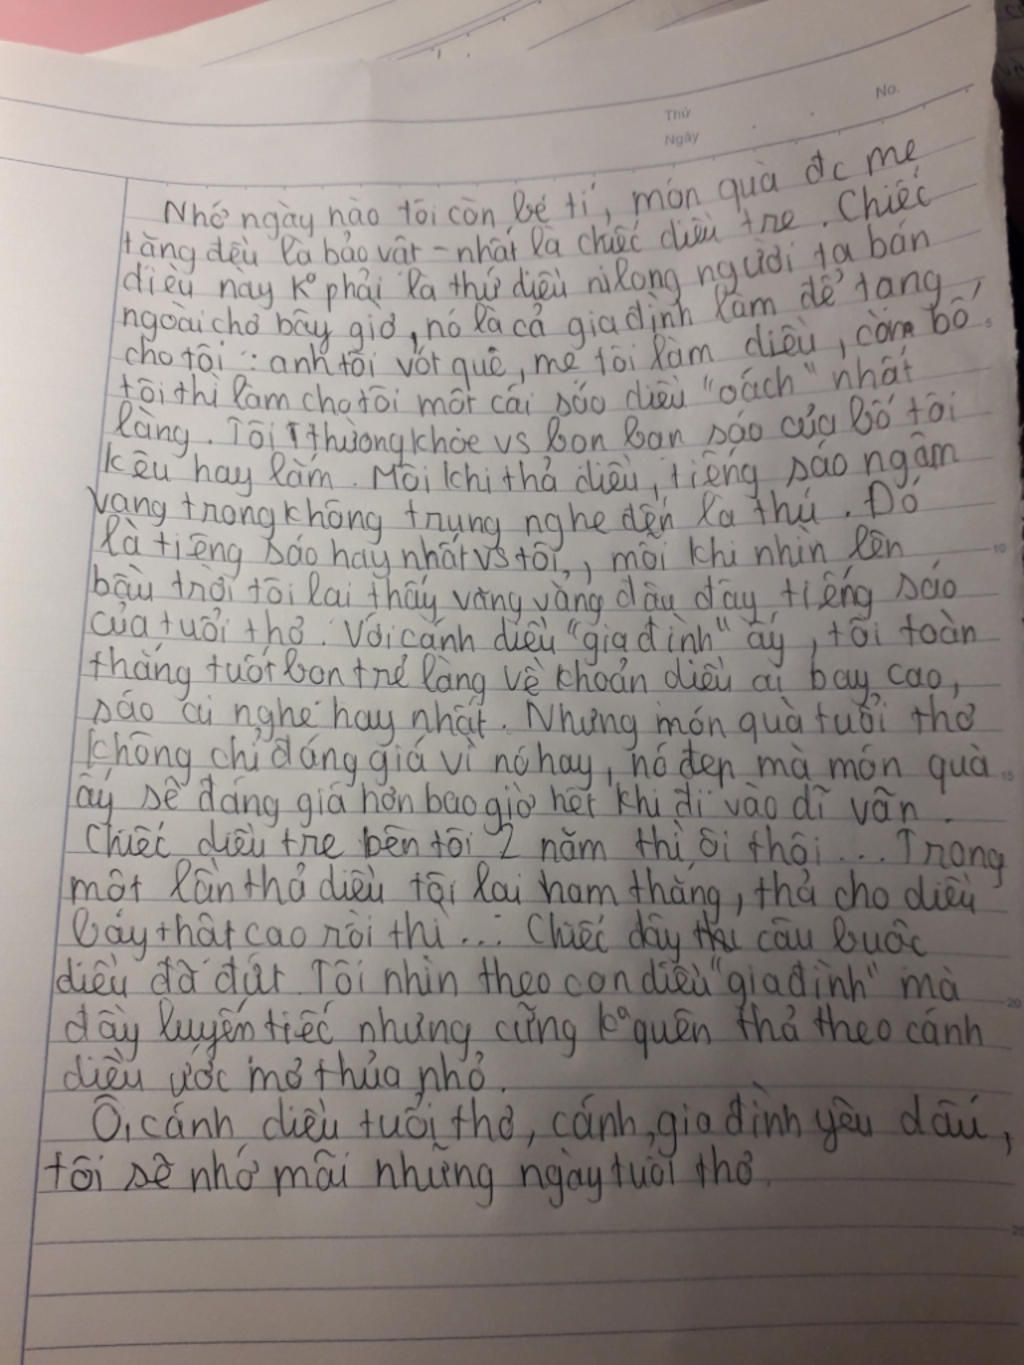 Thứ
Ngày
No.
Nhớ ngày nào tôi còn bé tí, món quà đc mẹ
tặng đều là bảo vật - nhất là chiếc diều tre. Chiếc
diều này kº phải là thứ diều nilong người ta bán
ngoài chợ bây giờ, nó là cả gia đình làm để tặng
cho tôi : anh tôi vót quê, mẹ tôi làm diều, còn bố
tôi thì làm cho tôi một cái sáo diều "oách" nhất
làng. Tôi thường khoe vs bọn bạn sáo của bố tôi
kêu hay lắm. Mỗi khi thả diều, tiếng sáo ngâm
vang trong không trung nghe đến là thú. Đó
là tiếng sáo hay nhất vs tôi, mỗi khi nhìn lên
bầu trời tôi lại thấy văng vẳng đâu đây tiếng sáo
của tuổi thơ. Với cánh diều "gia đình" ấy, tôi toàn
thắng tuốt bọn trẻ làng về khoản diều ai bay cao,
sáo ai nghe hay nhất. Nhưng món quà tuổi thơ
không chỉ đáng giá vì nó hay, nó đẹp mà món quà
ấy sẽ đáng giá hơn bao giờ hết khi đi vào dĩ vãn.
Chiếc diều tre bên tôi 2 năm thì ôi thôi... Trong
một lần thả diều tôi lại ham thắng, thả cho diều
bay thật cao rồi thì... Chiếc dây câu buộc
diều đã đứt. Tôi nhìn theo con diều "gia đình" mà
đầy luyến tiếc nhưng cũng kº quên thả theo cánh
diều ước mơ thủa nhỏ.
Ôi, cánh diều tuổi thơ, cánh gia đình yêu dấu,
tôi sẽ nhớ mãi những ngày tuổi thơ.
5
10
15
20